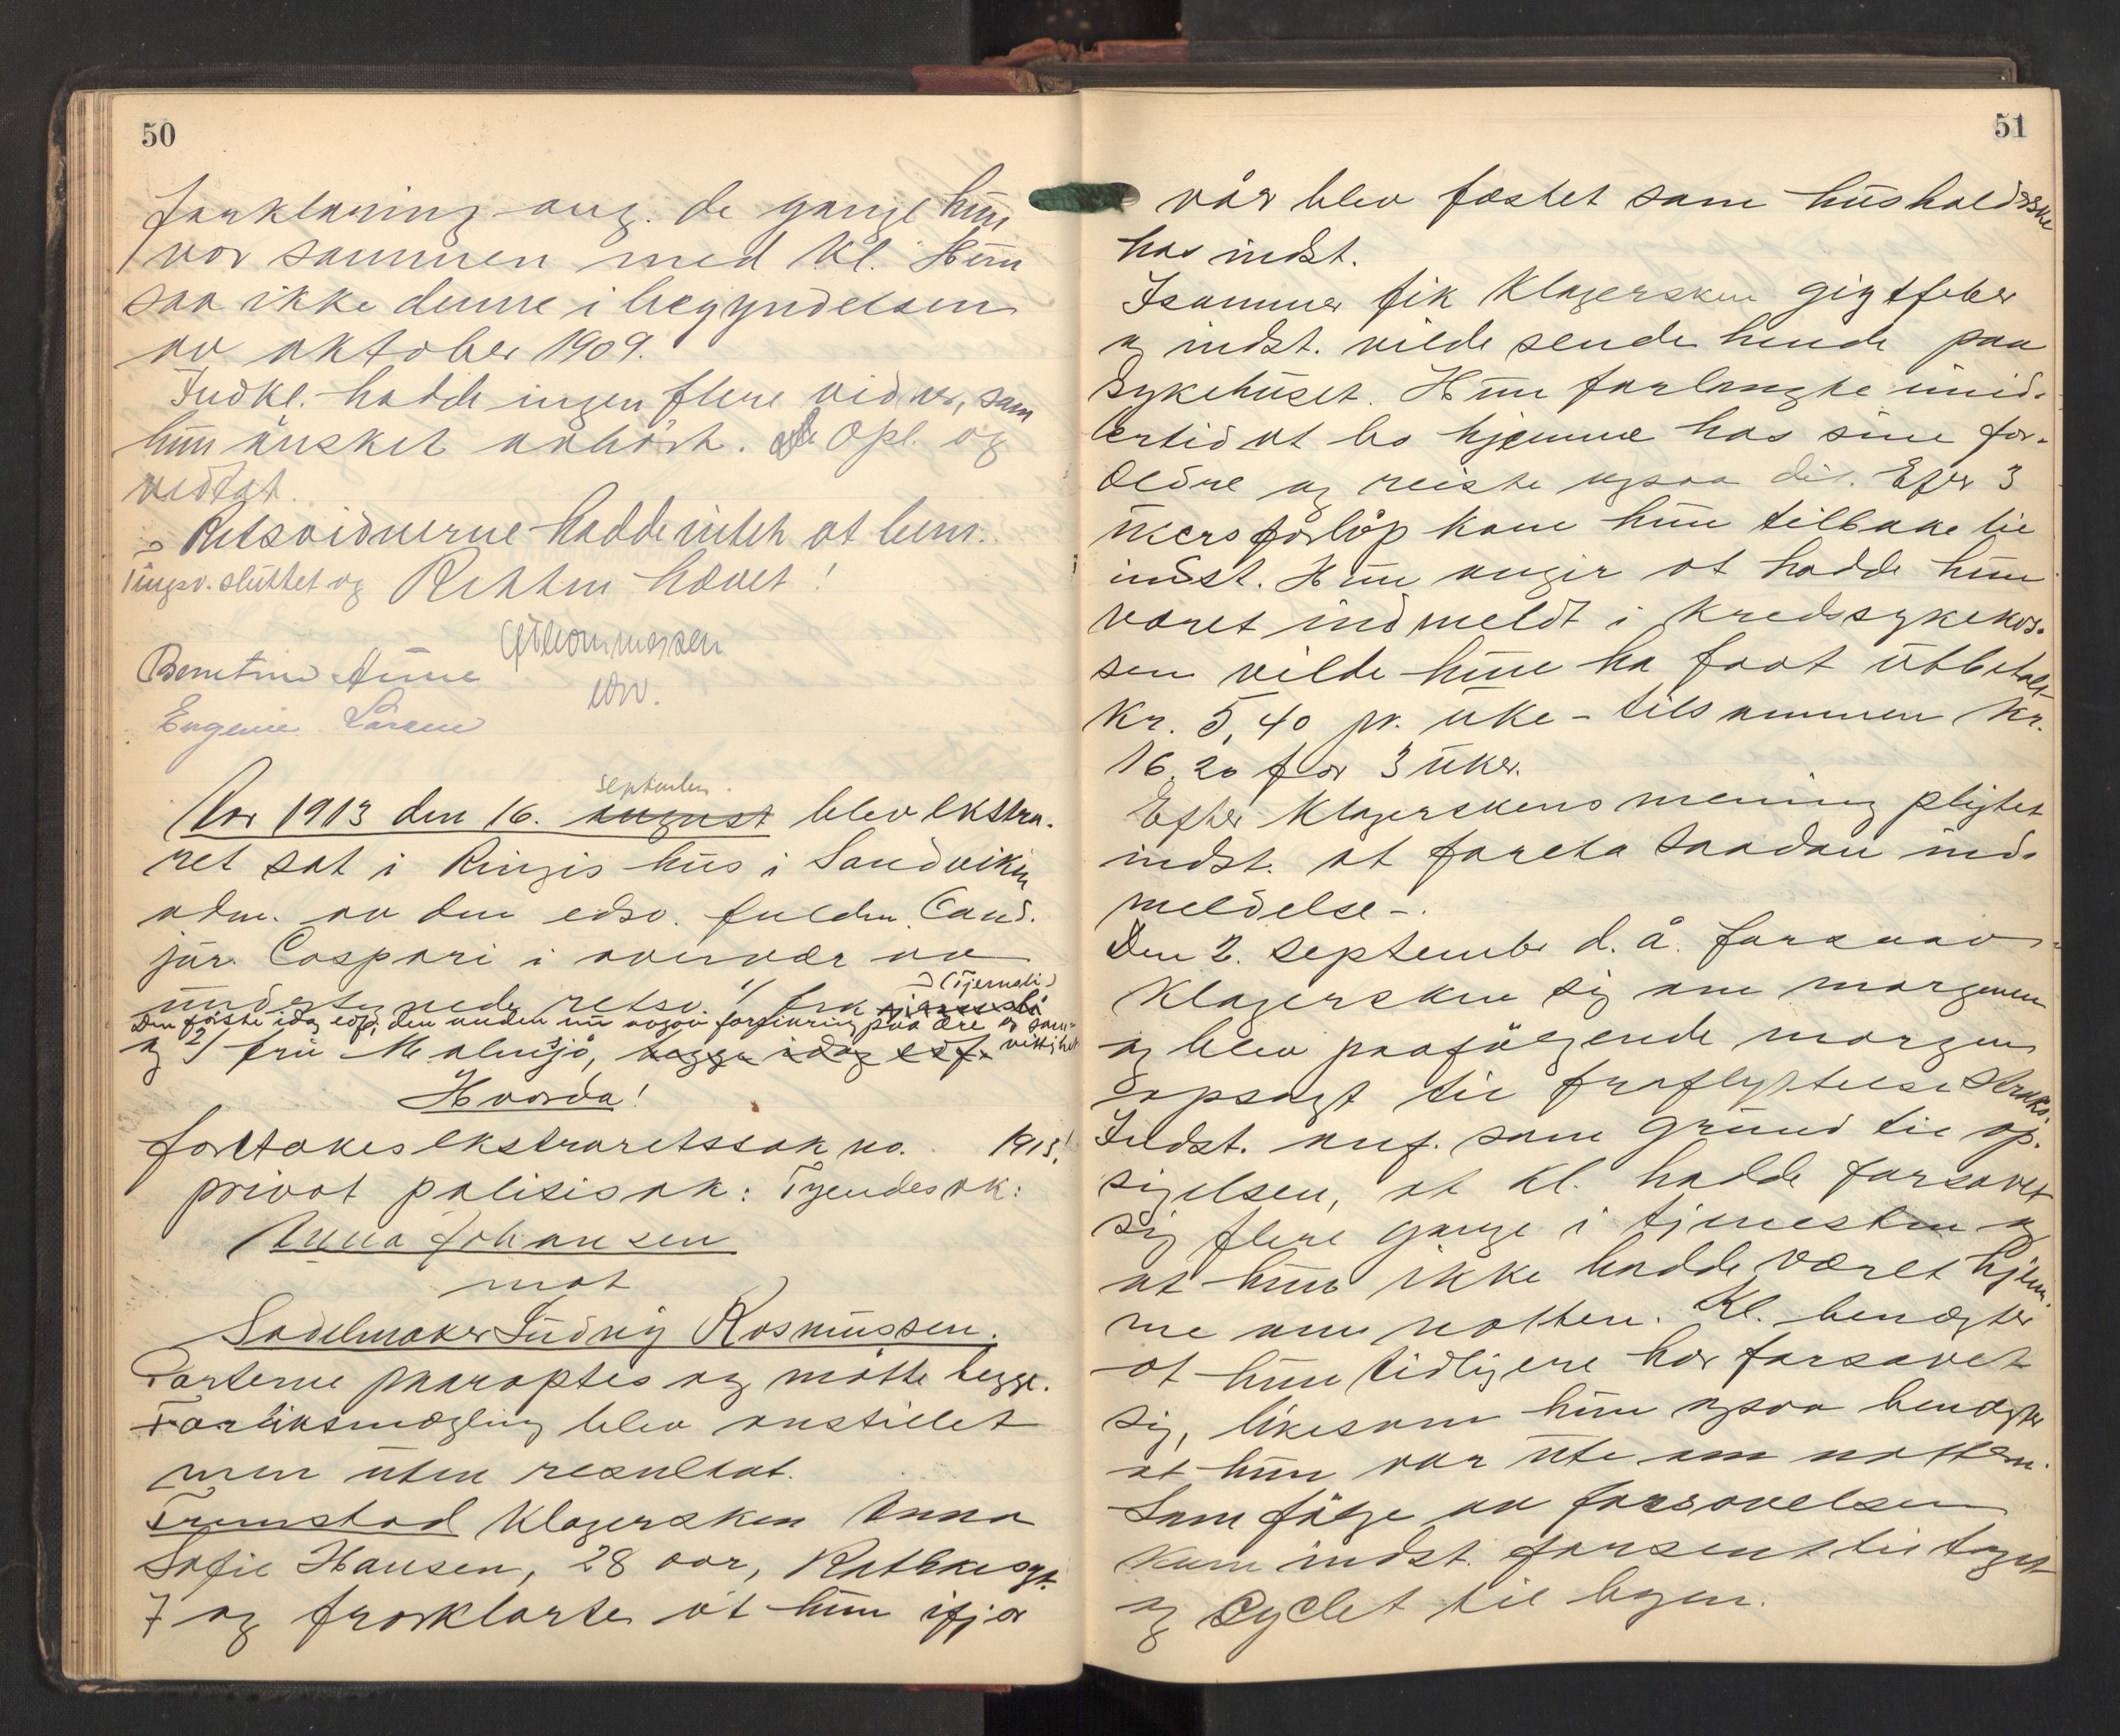 50
forklaring ang. de gange hun
var sammen med Kl. Hun
saa ikke denne i begyndelsen
av oktober 1909.
Indkl. hadde ingen flere vidner, som
hun ønsket avhørt. Opl. og
vedtat.
Retsvidnerne hadde intet at bem.
Tingsv. sluttet og Retten hævet!
Thommessen
Berntine Aune
Eugenie Larsen
september.
Aar 1913 den 16. august blev ekstra-
ret sat i Ringis hus i Sandviken
adm. av den edsv. fuldm. Cand.
jur. Caspari i overvær av
(Tjernsli)
undertegnede retsv. 1/ fru
Den første idag edf., den anden nu avgav forsikring paa ære og sam-
vittighet
og 2/ fru Malmsjø, begge idag edf.
Hvorda!
foretokes ekstraretssak no. 1913!
privat politisak: Tyendesak:
Anna Johansen
mot
Sadelmaker Ludvig Rasmussen.
Parterne paaroptes og møtte begge.
Forliksmægling blev anstillet
men uten resultat.
Fremstod Klagersken Anna
Sofie Hansen, 28 aar, Rathkesgt.
7 og forklarte at hun ifjor
51
vår blev fæstet som husholderske
hos indst.
Isommer fik Klagersken gigtfeber
og indst. vilde sende hende paa
Sykehuset. Hun forlangte imid-
lertid at bo hjemme hos sine for-
ældre og reiste ogsaa dit. Efter 3
ukers forløp kom hun tilbake til
indst. Hun angir at hadde hun
været indmeldt i Kredssykekas-
sen vilde hun ha faat utbetalt
Kr. 5,40 pr. uke - tilsammen Kr.
16.20 for 3 uker.
Efter Klagerskens mening pligtet
indst. at foreta saadan ind-
meldelse -.
Den 2. september d. å. forsov
Klagersken sig om morgenen
og blev paafølgende morgen
opsagt til fraflyttelse straks.
Indst. anf. som grund til op-
sigelsen, at Kl. hadde forsovet
sig flere gange i tjenesten og
at hun ikke hadde været hjem-
me om natten. Kl. benægter
at hun tidligere har forsovet
sig, likesom hun ogsaa benægter
at hun var ute om natten.
Som følge av forsovelsen
kom indst. forsent til toget
og cyclet til byen.